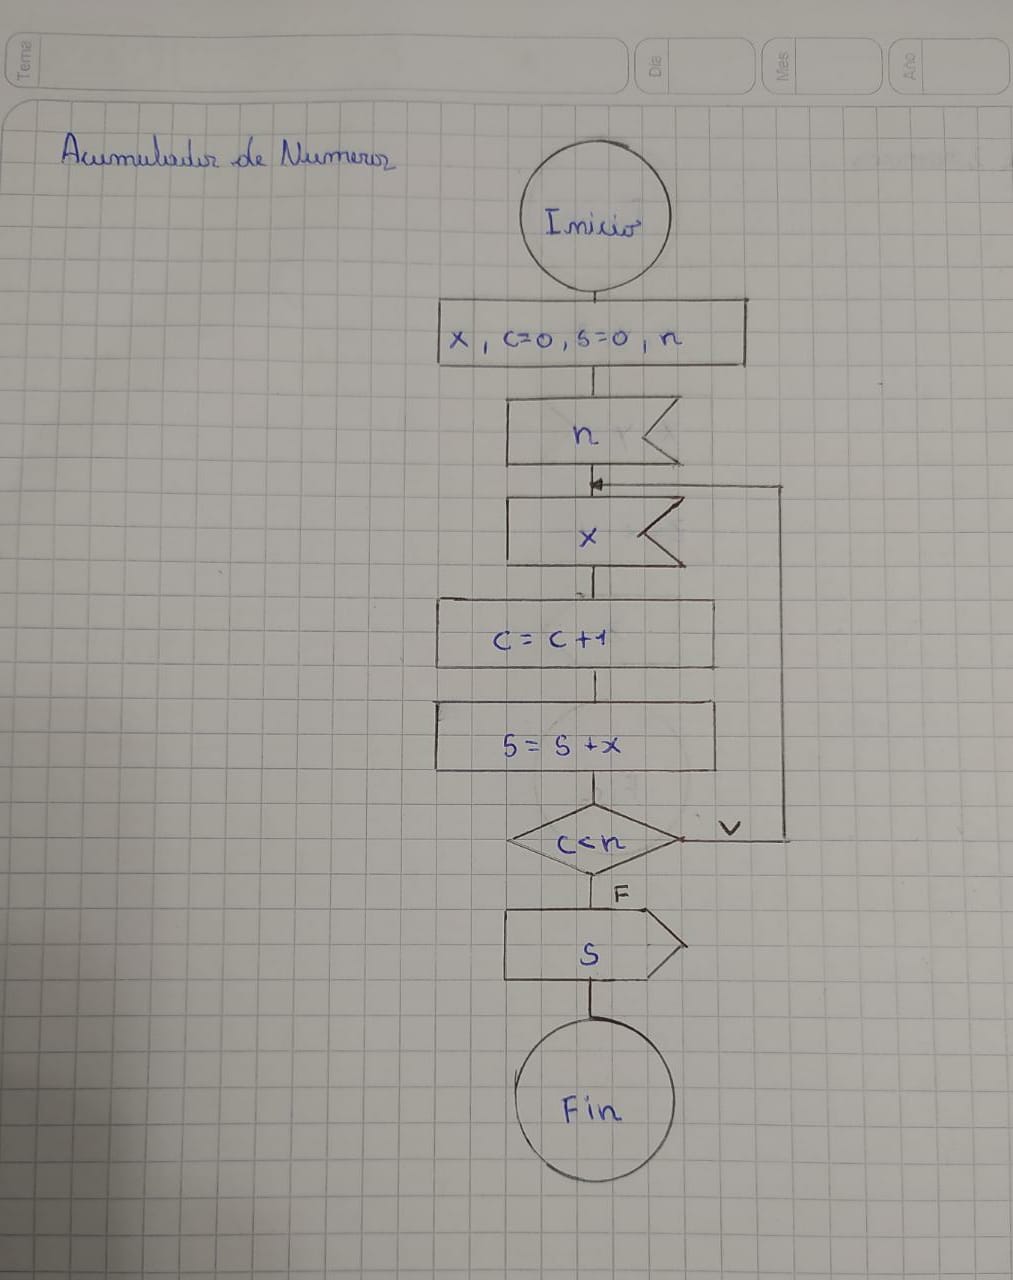 Tema
Dia
Mes
Año
Acumulador de Numeros
Inicio
x, c=0, s=0, n
n
x
c = c+1
s = s+x
c<n
V
F
S
Fin